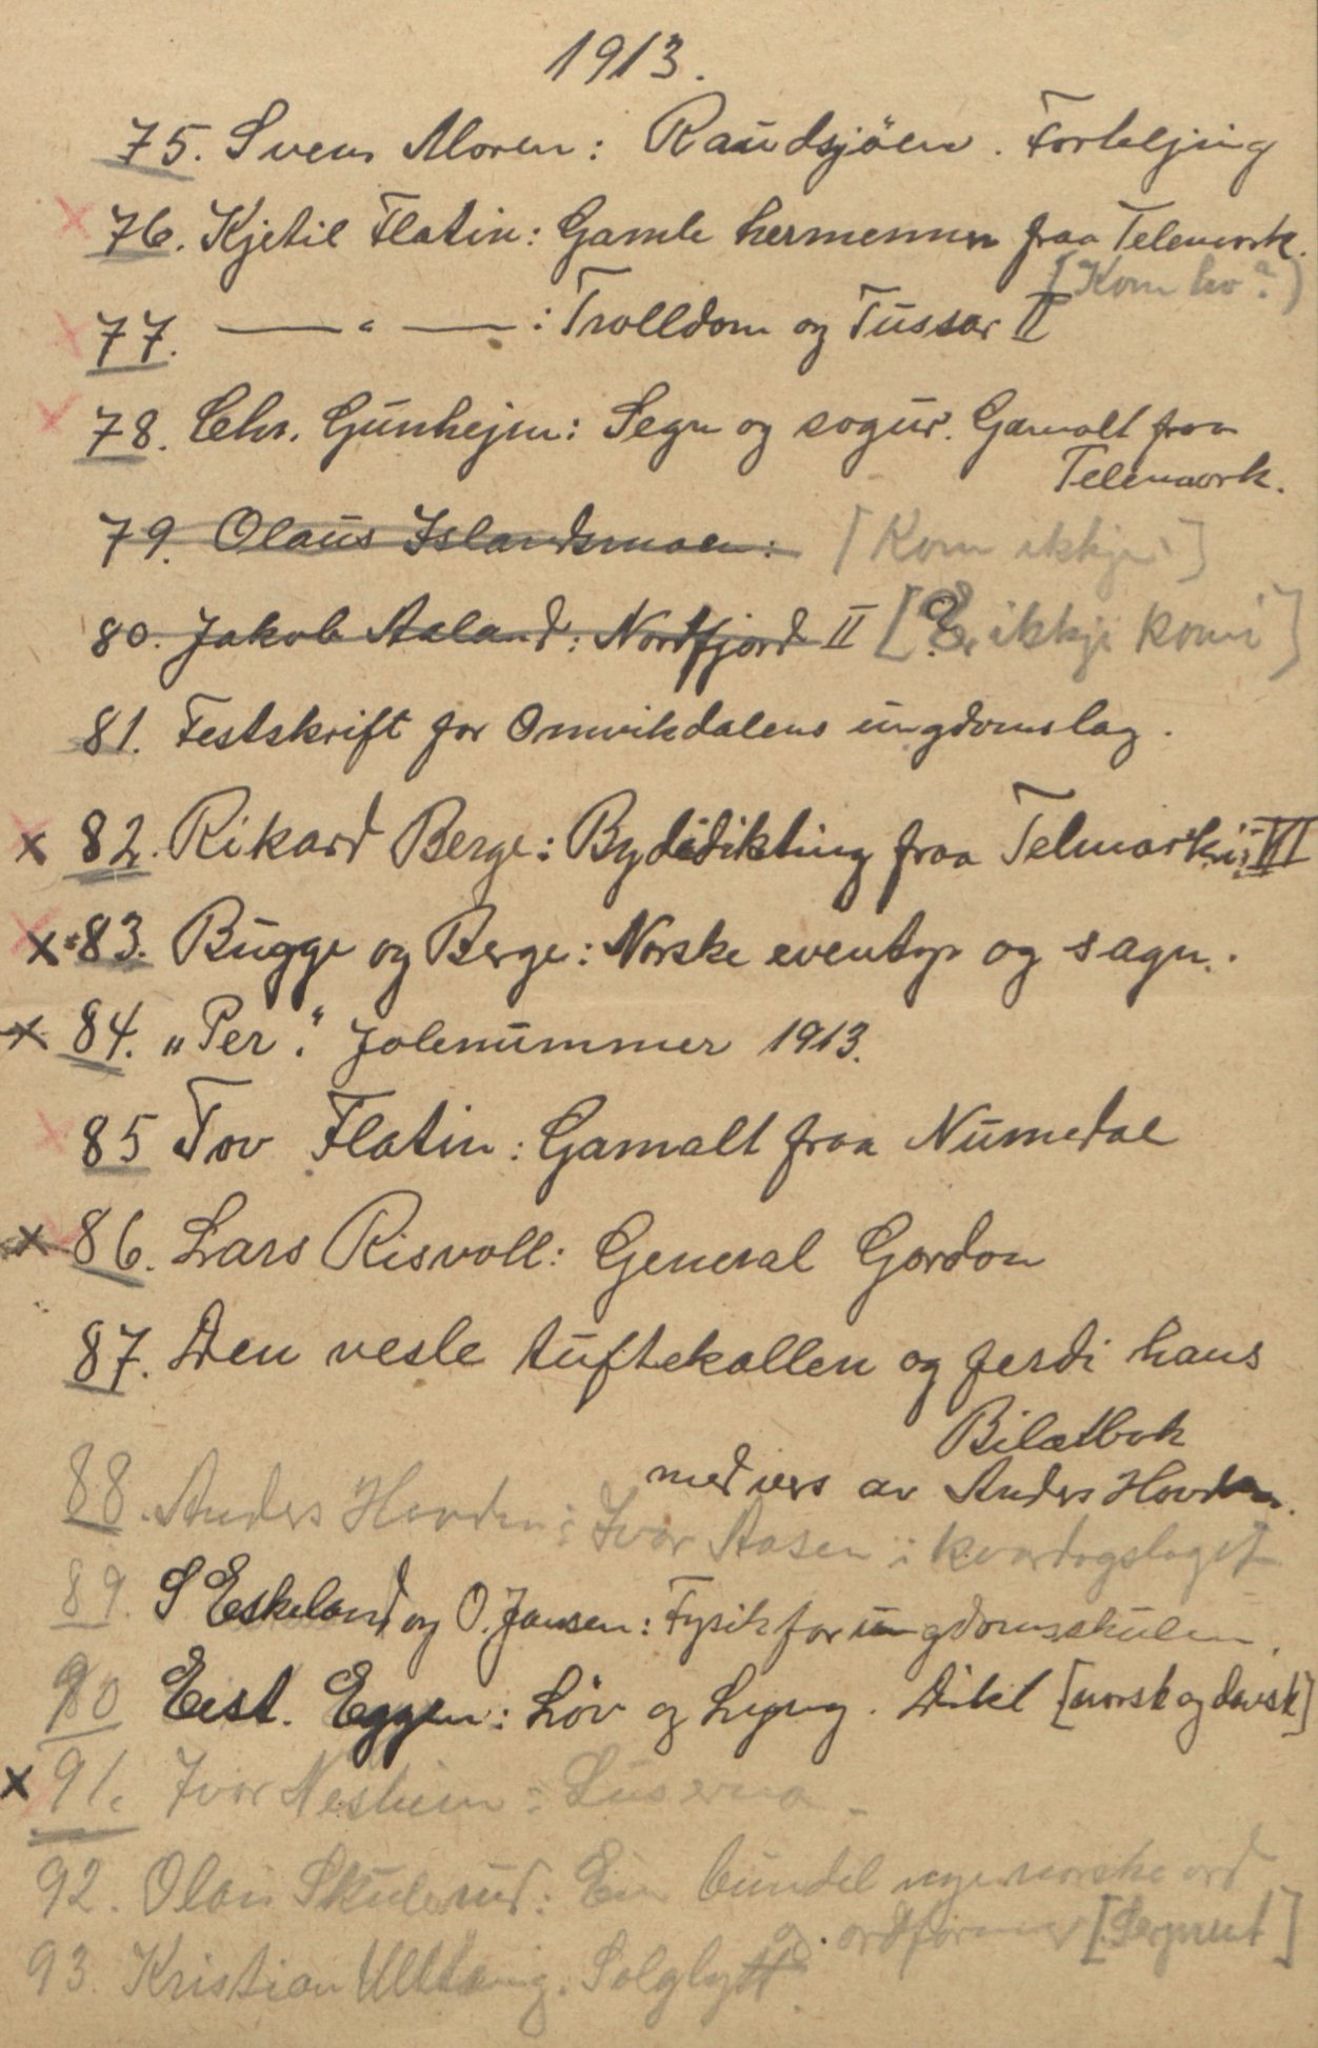 1913.
75. Sven Moren: Raudsjöen. Forteljing
x 76. Kjetil Flatin: Gamle hermennen fraa Telemork.
(Kom ?)
x 77. —— " ——: Trolldom og Tussar II
x 78. Chr. Gunhejm: Segn og sogur. Gamalt fraa
Telemork.
79. Olaus Islandsmoen: [Kom ikkje]
80. Jakob Aaland: Nordfjord II [Er ikkje komi]
81. Festskrift for Omvikdalens ungdomslag.
x 82. Rikard Berge: Bydedikting fraa Telmarki; VI
x 83. Bugge og Berge: Norske eventyr og sagn.
x 84. „Per". Jolenummer 1913.
x 85 Tov Flatin: Gamalt fraa Numedal
x 86. Lars Risvoll: General Gordon
87. Den vesle tuftekallen og ferdi hans
Biletbok
med vers av Anders Hovden.
88. Anders Hovden: Ivar Aasen i kvardagslaget
89. S Eskeland og O. Jansen: Fysik for ungdomsskulen.
90 Eist. Eggen: Löv og Lyng. Dikt [norsk og dansk]
x 91. Ivar Neshim: Luserna
92. Olai Skulerud: Ein bundel nye norske ord
og ordformer [Serprent]
93. Kristian Ulltang. Solglytt